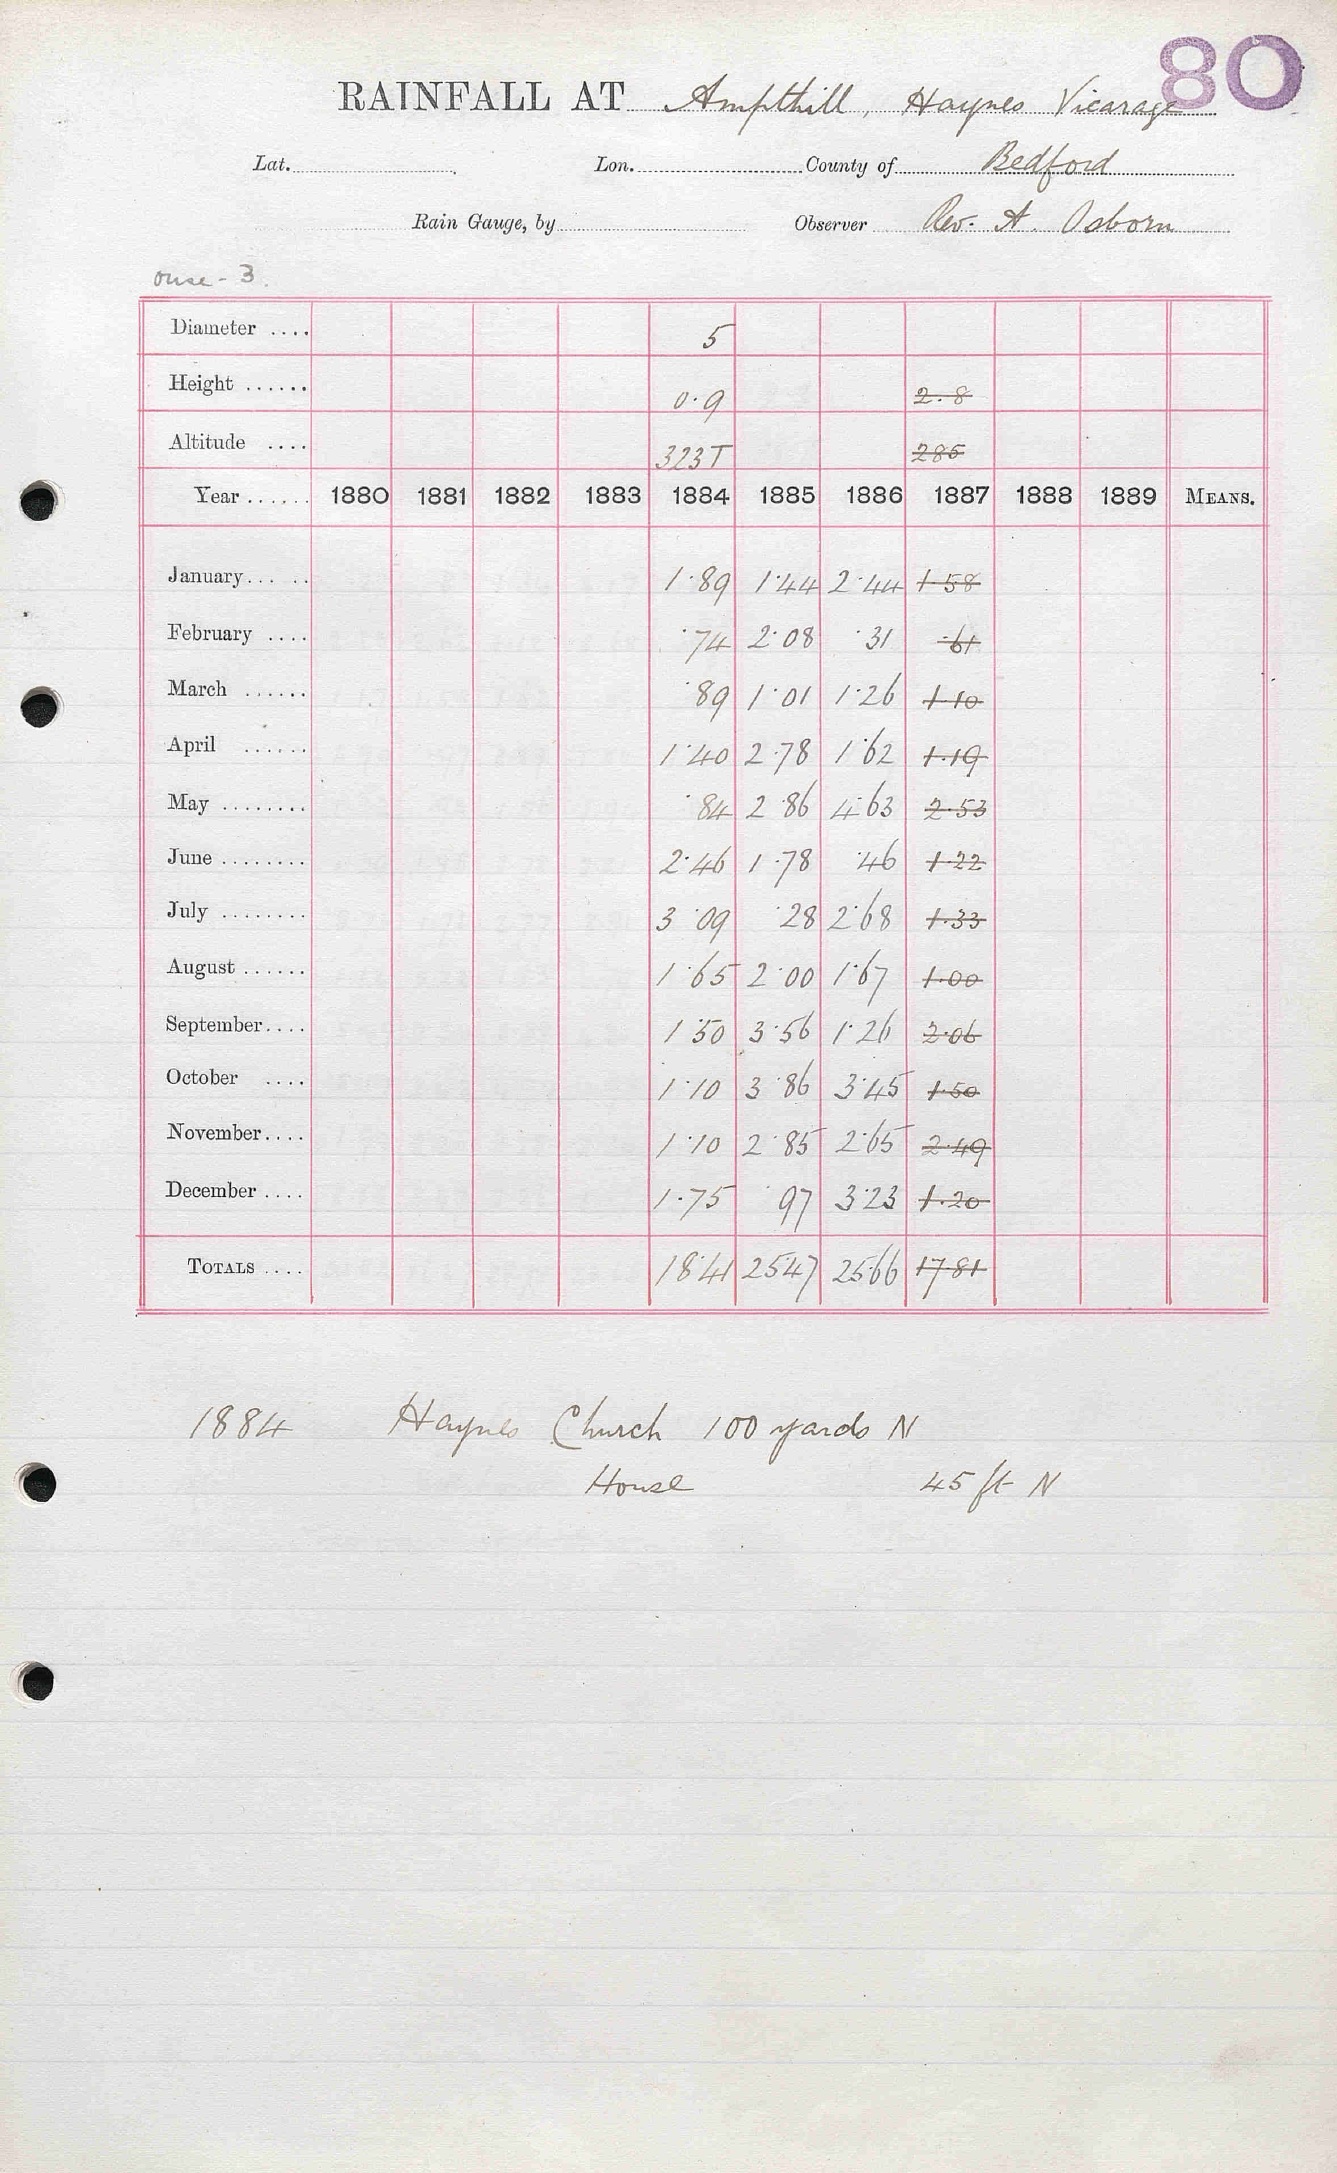 80
RAINFALL AT Ampthill, Haynes Vicarage
Lat. Lon. County of Bedford
Rain Gauge, by Observer Rev. A. Osborn
Ouse - 3.
Diameter .... 5
Height ...... 0.9 2.8
Altitude .... 323T 285
Year ...... 1880 1881 1882 1883 1884 1885 1886 1887 1888 1889 MEANS.
January... .. 1.89 1.44 2.44 1.58
February .... .74 2.08 .31 .61
March ...... .89 1.01 1.26 1.10
April ...... 1.40 2.78 1.62 1.19
May ........ .84 2.86 4.63 2.53
June ........ 2.46 1.78 .46 1.22
July ........ 3.09 .28 2.68 1.33
August ...... 1.65 2.00 1.67 1.00
September.... 1.50 3.56 1.26 2.06
October .... 1.10 3.86 3.45 1.50
November.... 1.10 2.85 2.65 2.49
December .... 1.75 .97 3.23 1.20
TOTALS .... 18.41 25.47 25.66 17.81
1884 Haynes Church 100 yards N
House 45 ft N